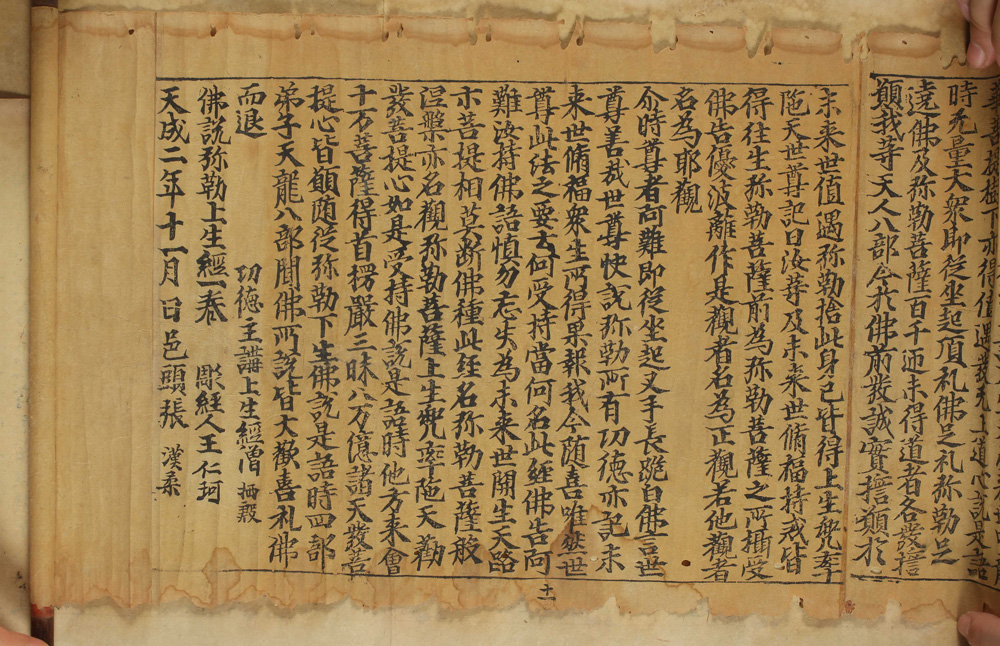 菩提樹下亦得值遇發无上道心說是語
時无量大衆即從坐起頂礼佛足礼弥勒足
遶佛及弥勒菩薩百千迊未得道者各發誓
願我等天人八部今於佛前發誠實誓願於
未來世值遇弥勒捨此身已皆得上生兜率
陁天世尊記曰汝等及未來世脩福持戒皆
得往生弥勒菩薩前為弥勒菩薩之所攝受
佛告優波離作是觀者名為正觀若他觀者
名為耶觀
尒時尊者阿難即從坐起叉手長跪白佛言世
尊善哉世尊快說弥勒所有功德亦記未
來世脩福衆生所得果報我今随喜唯然世
尊此法之要云何受持當何名此經佛告阿
難汝持佛語慎勿忘失為未來世開生天路
示菩提相莫断佛種此經名弥勒菩薩般
涅槃亦名觀弥勒菩薩上生兜率陁天勸
發菩提心如是受持佛說是語時他方來會
十万菩薩得首楞嚴三昧八万億諸天發菩
提心皆願随從弥勒下生佛說是語時四部
弟子天龍八部聞佛所說皆大歡喜礼佛
而退 功德主講上生經僧 栖殷
佛說弥勒上生經一卷 彫經人王仁珂
天成二年十一月 日邑頭張 漢柔
十一